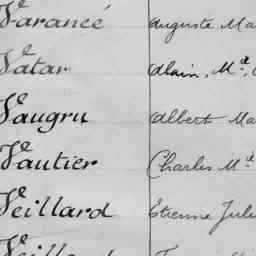 Varancé Auguste Ma
Vatar Alain, Md,
Vaugru Albert Ma
Vautier Charles Md
Veillard Etienne Juli